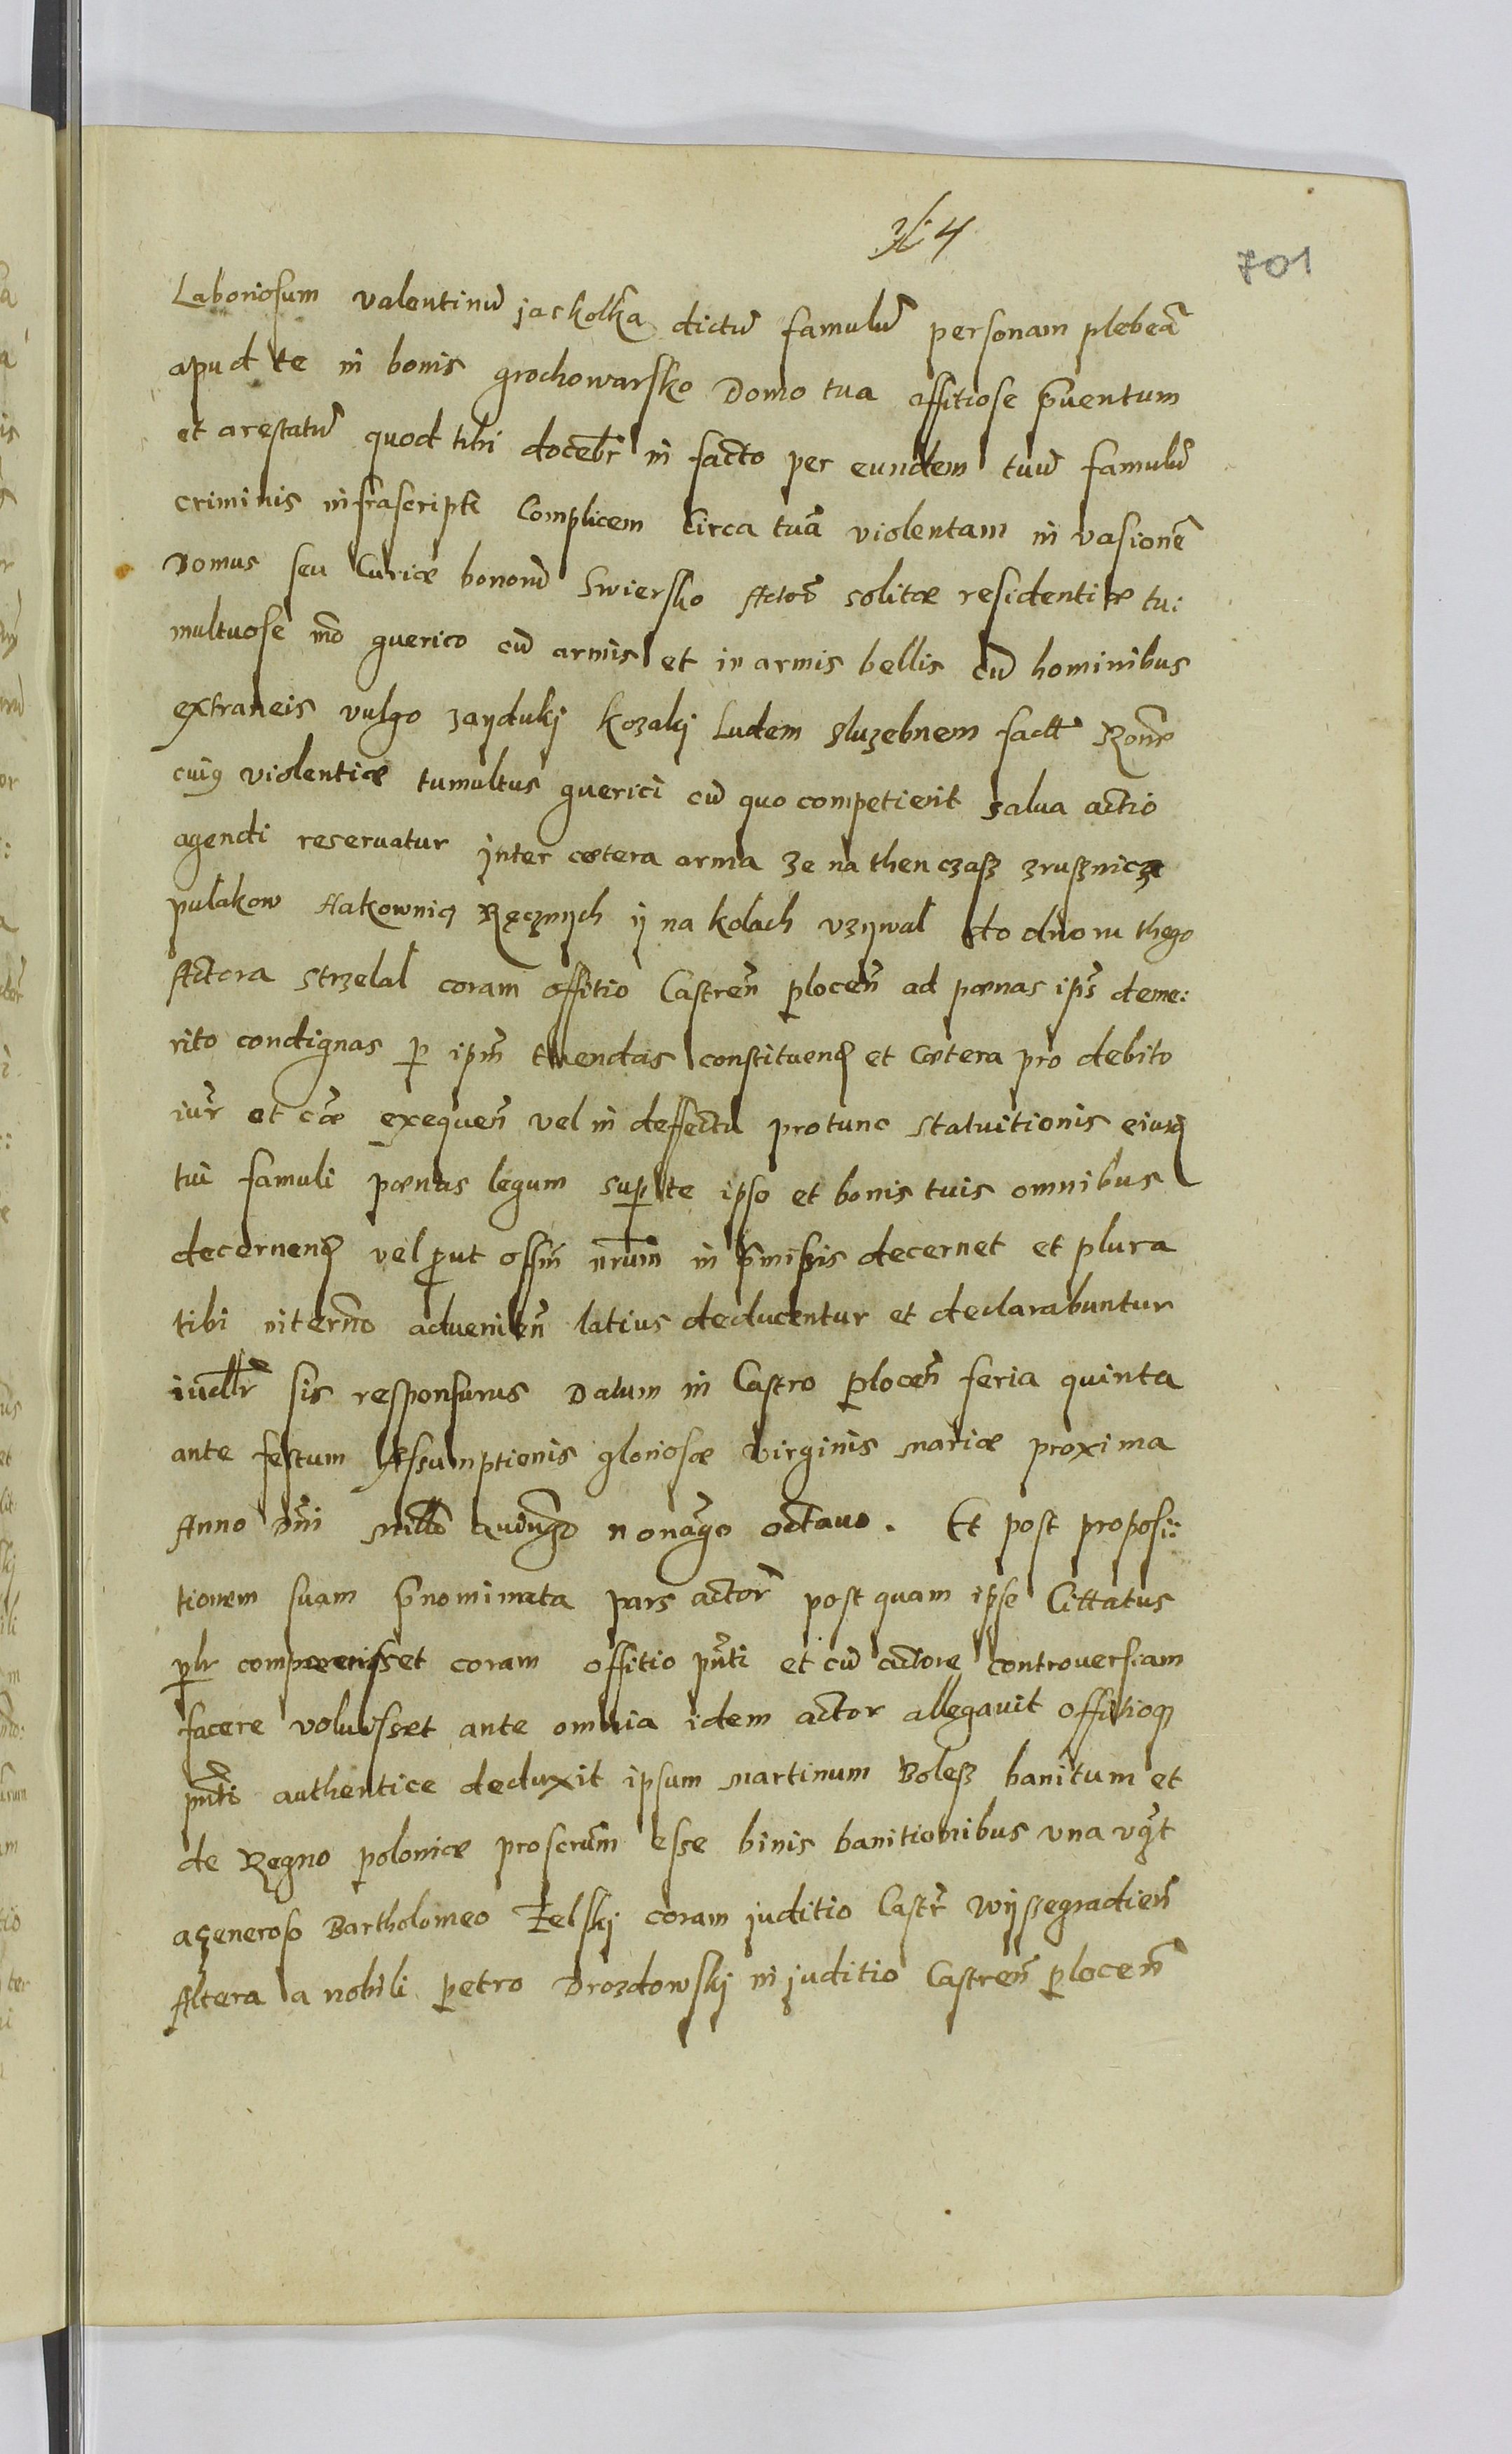 701
Laboriosum valentinū jackolka dictū famulū personam plebeā
apud te in bonis grochowarsko Domo tua offitiose p̄uentum
et arestatū quod tibi docebr̄ in facto per eundem tuū famulū
criminis infrascripti Complicem Circa tuā violentam in vasionē
Domus seu Curiæ bonorū Swiersko Actor̄ solitæ residentiæ tu:
multuose mō guerico cū armis et in armis bellis cū hominibus
extraneis vulgo zayduki kozaki Ludem sluzebnem fact̄ Rōne
cuiꝰ violentiæ tumultus guerici cū quo competierit salua actio
agendi reseruatur Inter cætera arma ze na then czasz z rusznicz
pulakow Hakownicz Ręcznych y na kolach vzywal do dworu thego
Actora strzelal coram offitio Castreñ ploceñ ad pœnas ip̄s deme:
rito condignas p ip̄m luendas constituend et Cætera pro debito
iur̄ et cæ exequeñ vel in deffectu pro tunc statuitionis eiusd
tui famuli pœnas legum super te ipso et bonis tuis omnibus
decernend vel put offm̄ nrum̄ in p̄missis decernet et plura
tibi in termō adueñieñ latius deducentur et declarabuntur
iudllr̄ sis responsurus Datum in Castro ploceñ feria quinta
ante festum Assumptionis gloriosæ virginis mariæ proxima
Anno Dn̄i millō quingō nonagō octauo. Et post proposi:
tionem suam p̄nominata pars actor̄ post quam ipse Cittatus
plr comparuisset coram offitio pn̄ti et cū actore controuersiam
facere voluisset ante omnia idem actor allegauit offitioq
pn̄ti authentice deduxit ipsum martinum Bolesz banitum et
de Regno poloniæ proscrm̄ esse binis banitionibus vna vq̄t
a generoso Bartholomeo Zelski coram juditio Castr̄ Wyszegradieñ
Altera a nobili petro Drozdowski in juditio Castreñ ploceñ